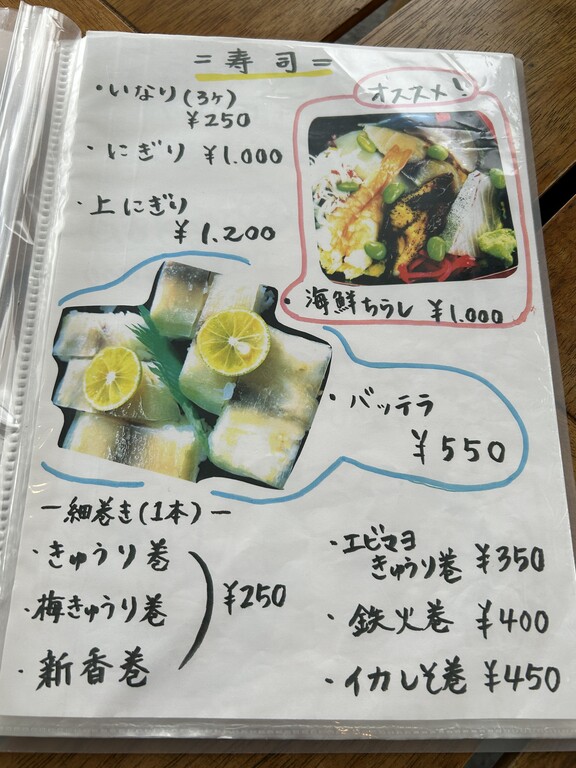 = 寿司 =
・いなり(3ヶ)
¥250
・にぎり ¥1.000
・上にぎり
¥1.200
オススメ!
・海鮮ちらし ¥1.000
・バッテラ
¥550
ー細巻き(1本)ー
・きゅうり巻
・梅きゅうり巻
・新香巻
¥250
・エビマヨ
きゅうり巻 ¥350
・鉄火巻 ¥400
・イカしそ巻 ¥450